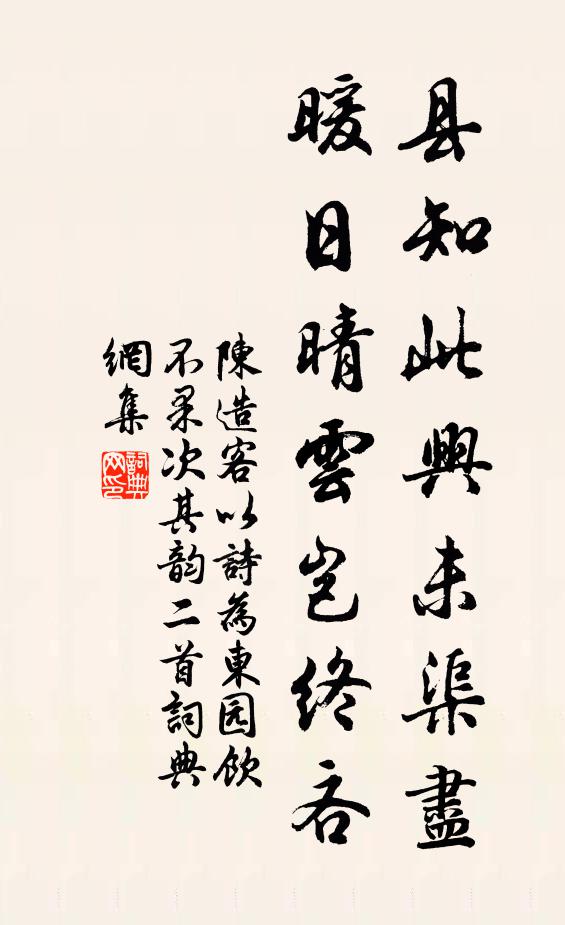 县知此興未渠盡
暖日晴雲岂終吝
陳造客以詩為東园飲
不果次其韵二首詞典
網集
詞典
网印